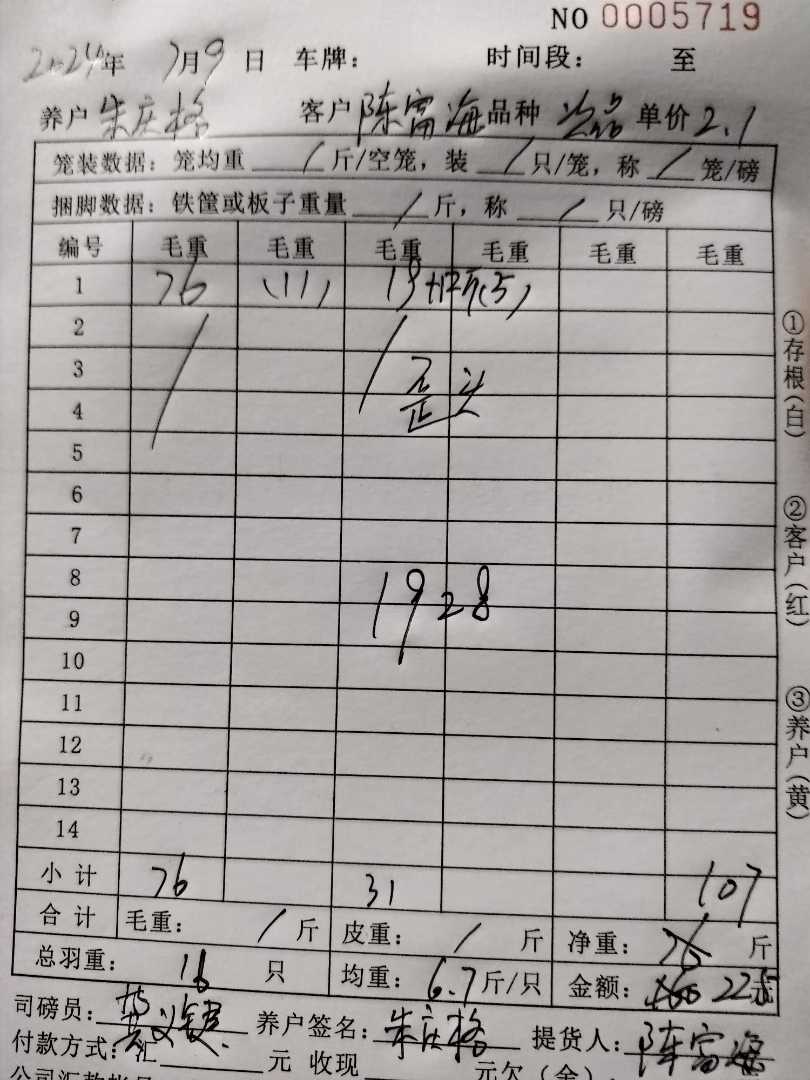 NO 0005719
2024年 7月9日 车牌： 时间段： 至
养户 朱庆格 客户 陈富海 品种 单价 2.1
笼装数据：笼均重 / 斤/空笼，装 / 只/笼，称 / 笼/磅
捆脚数据：铁筐或板子重量 / 斤，称 / 只/磅
编号 毛重 毛重 毛重 毛重 毛重 毛重
1 76 (11) 19+12 (5)
2
3 歪头
4
5
6
7
8 1928
9
10
11
12
13
14
小计 76 31 107
合计 毛重： / 斤 皮重： / 斤 净重： 76 斤
总羽重： 16 只 均重： 6.7 斤/只 金额： 225 元
司磅员： 养户签名： 朱庆格 提货人： 陈富海
付款方式：汇 元 收现 元欠（余）
①存根(白)
②客户(红)
③养户(黄)